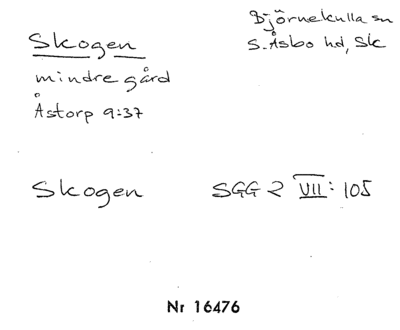 Skogen
Björnekulla sn
S. Åsbo hd, Sk
mindre gård
Åstorp 9:37
Skogen
SGG 2 VII: 105
Nr 16476